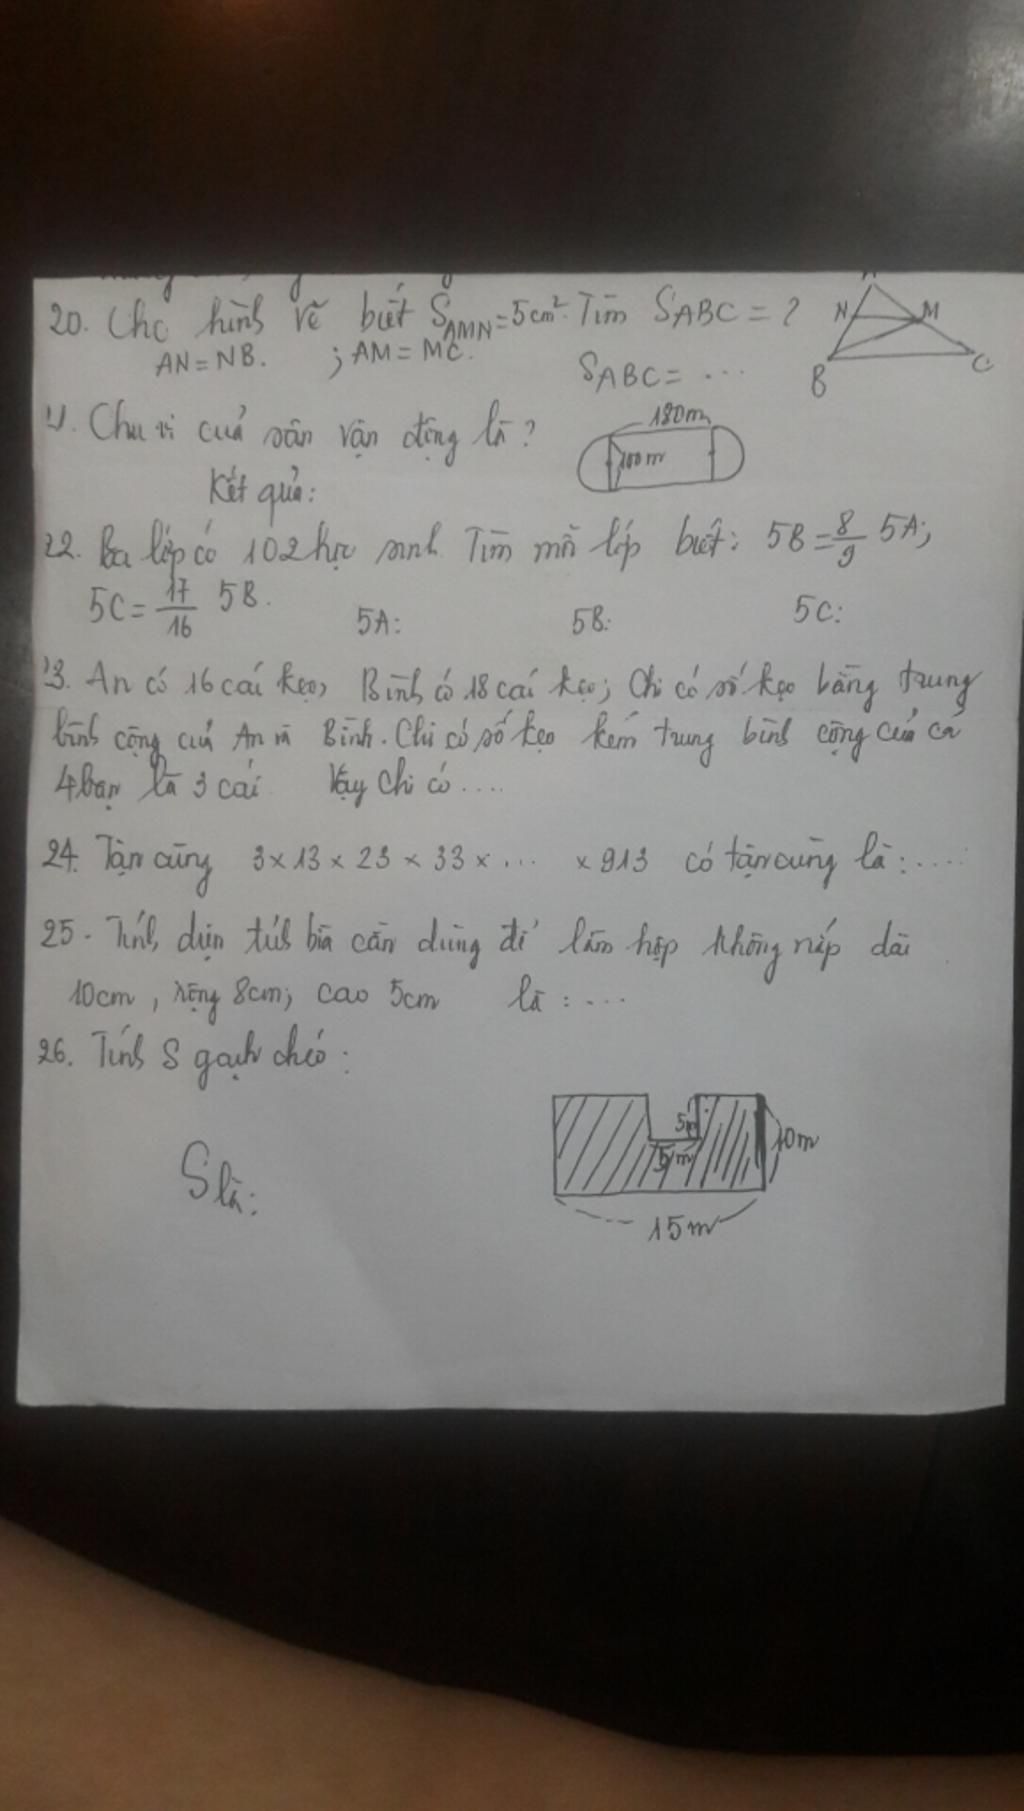 20. Cho hình vẽ biết SAMN = 5cm². Tìm SABC = ?
AN = NB. ; AM = MC.
SABC = ...
N M
B C
21. Chu vi của sân vận động là?
180m
100m
Kết quả:
22. Ba lớp có 102 học sinh. Tìm mỗi lớp biết: 5B = 8/9 5A;
5C = 17/16 5B. 5A: 5B: 5C:
23. An có 16 cái kẹo, Bình có 18 cái kẹo; Chi có số kẹo bằng trung
bình cộng của An và Bình. Chi có số kẹo kém trung bình cộng của cả
4 bạn là 3 cái. Vậy Chi có ....
24. Tận cùng 3 x 13 x 23 x 33 x ... x 913 có tận cùng là: ....
25. Tính diện tích bìa cần dùng để làm hộp không nắp dài
10cm, rộng 8cm; cao 5cm là: ....
26. Tính S gạch chéo:
5m
5m
10m
S là:
15m